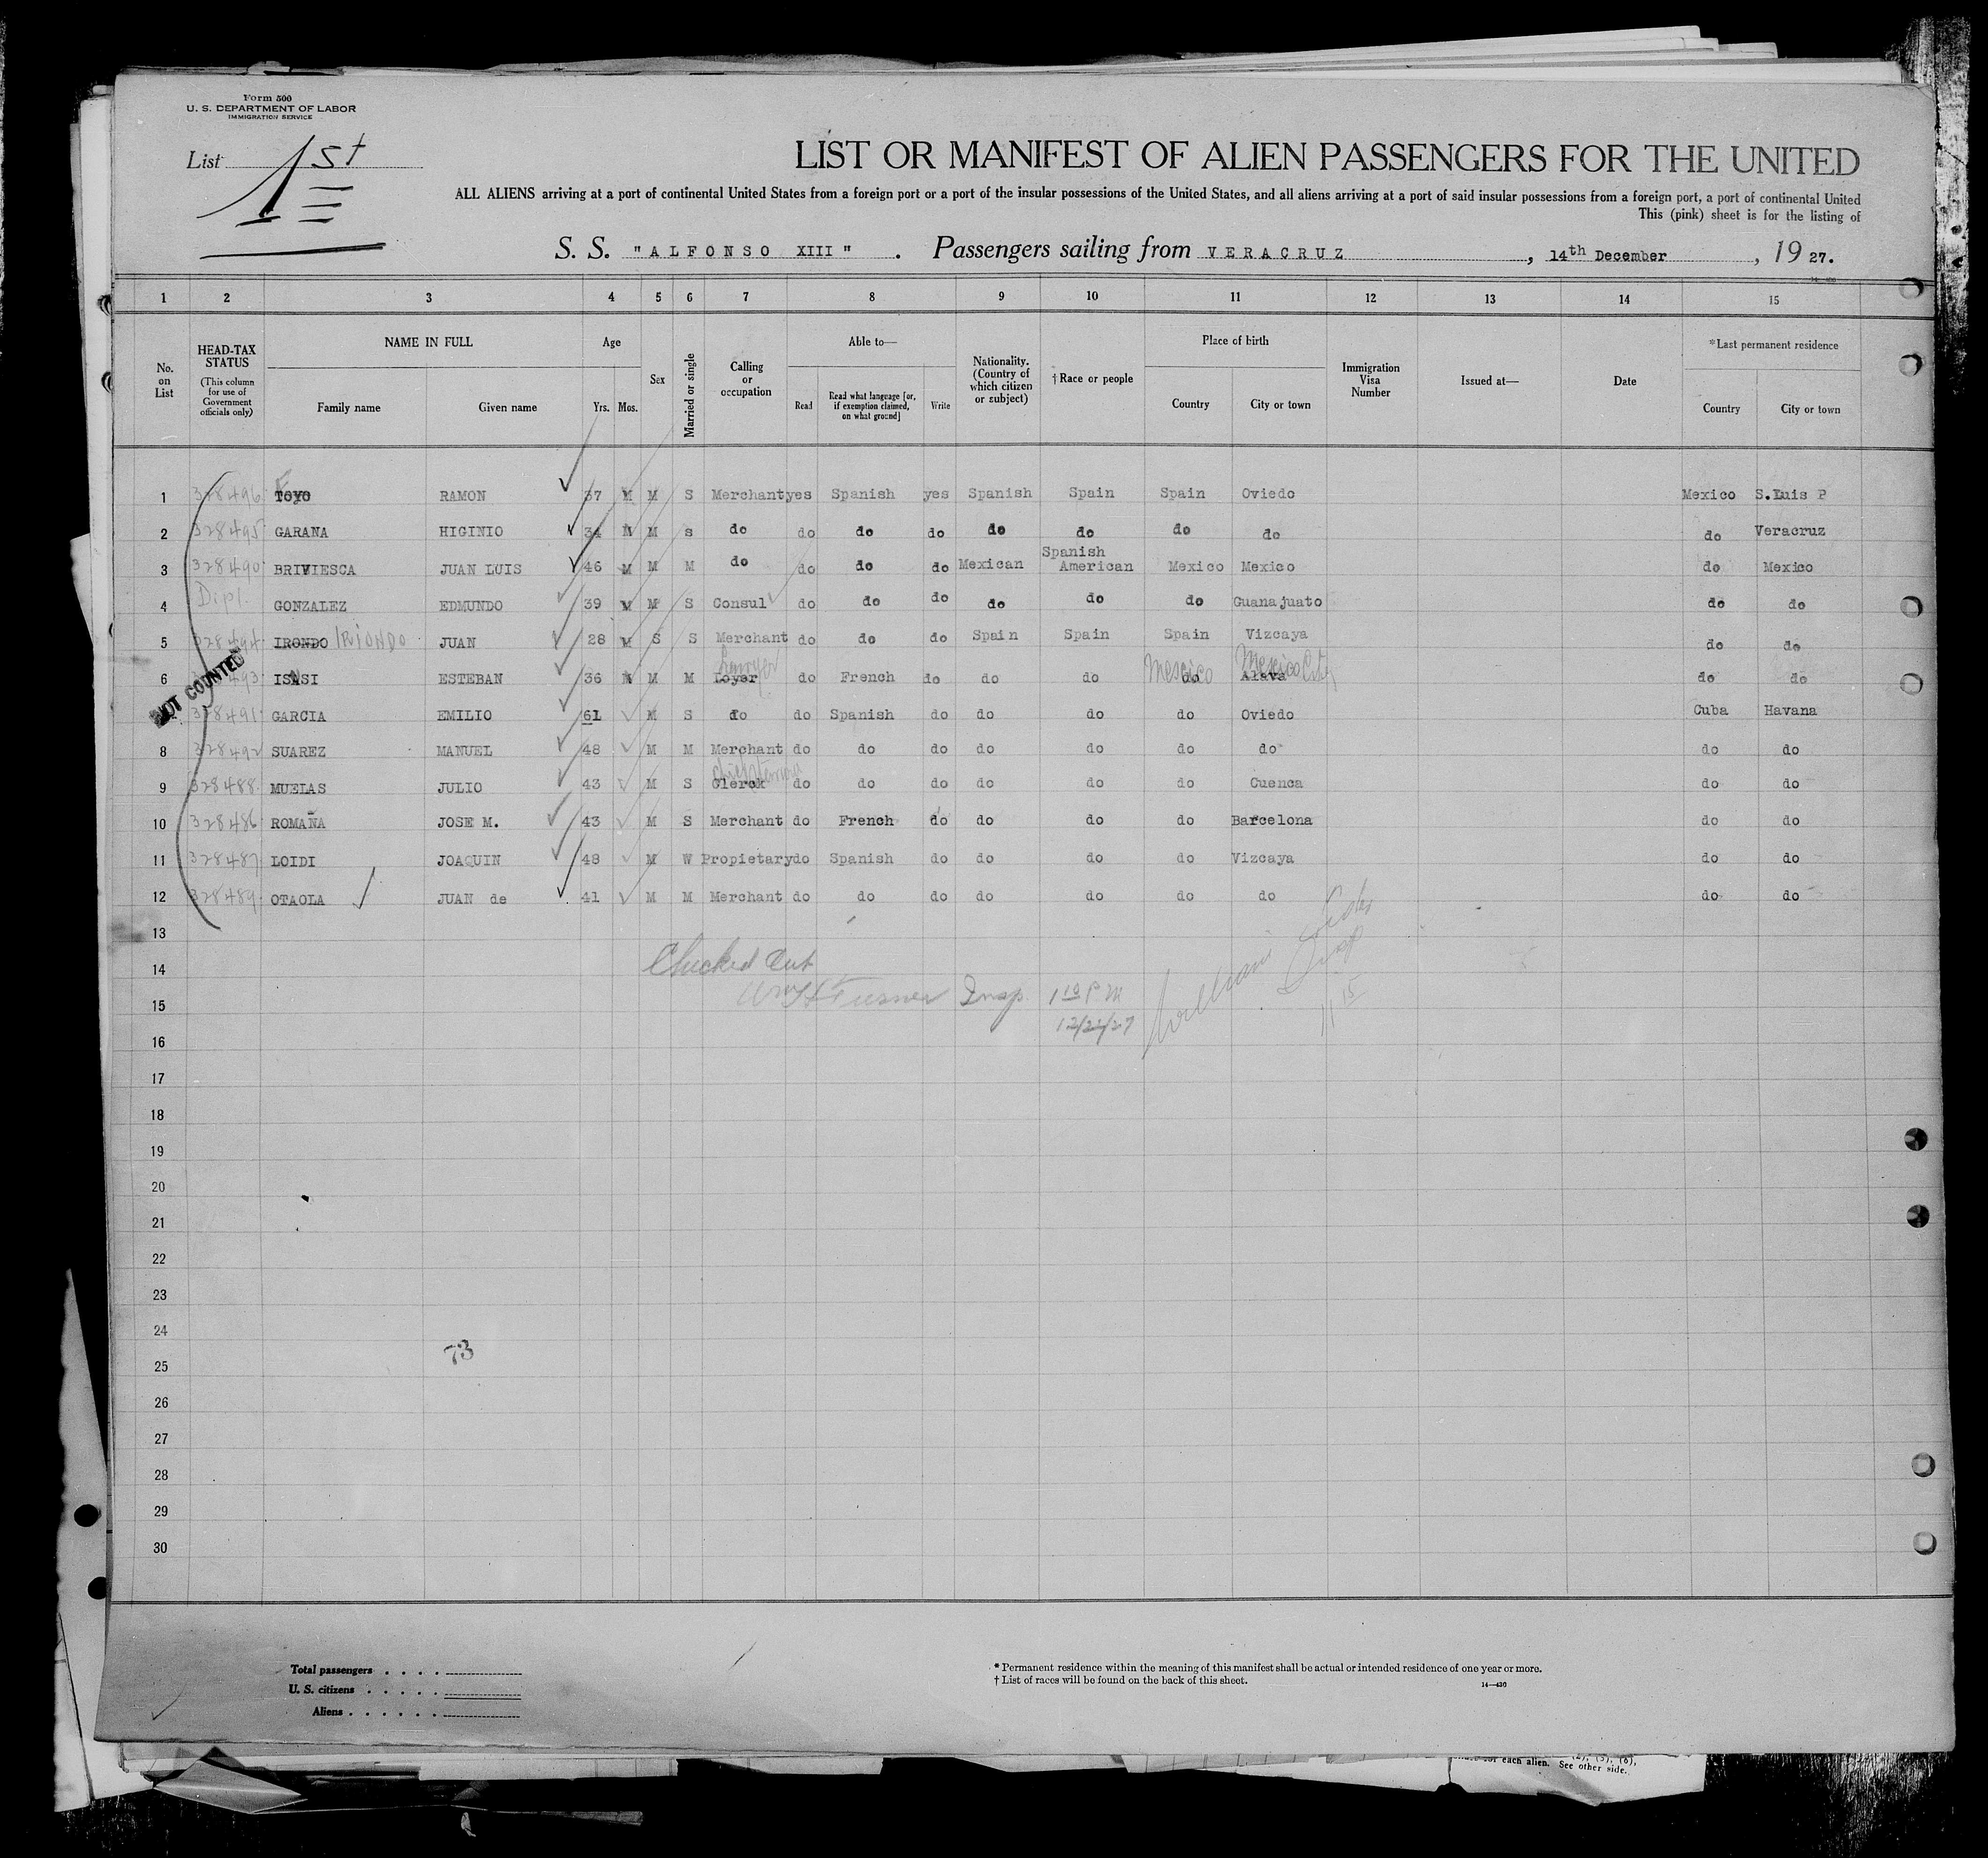 Form 500
U. S. DEPARTMENT OF LABOR
IMMIGRATION SERVICE
List 1st
1
LIST OR MANIFEST OF ALIEN PASSENGERS FOR THE UNITED
ALL ALIENS arriving at a port of continental United States from a foreign port or a port of the insular possessions of the United States, and all aliens arriving at a port of said insular possessions from a foreign port, a port of continental United
This (pink) sheet is for the listing of
S. S. "ALFONSO XIII". Passengers sailing from VERACRUZ, 14th December, 1927.
1 2 3 4 5 6 7 8 9 10 11 12 13 14 15
No. on List
HEAD-TAX STATUS (This column for use of Government officials only)
NAME IN FULL
Family name Given name
Age
Yrs. Mos.
Sex
Married or single
Calling or occupation
Able to—
Read
Read what language [or, if exemption claimed, on what ground]
Write
Nationality. (Country of which citizen or subject)
† Race or people
Place of birth
Country City or town
Immigration Visa Number
Issued at—
Date
*Last permanent residence
Country City or town
1 328496 TOYO RAMON 37 M M S Merchant yes Spanish yes Spanish Spain Spain Oviedo Mexico S.Luis P
2 328495 GARANA HIGINIO 34 M M s do do do do do do do do do Veracruz
3 328490 BRIVIESCA JUAN LUIS 46 M M M do do do do Mexican Spanish American Mexico Mexico do Mexico
4 Dipl. GONZALEZ EDMUNDO 39 M M S Consul do do do do do do Guanajuato do do
5 328494 IRONDO IRIONDO JUAN 28 M S S Merchant do do do Spain Spain Spain Vizcaya do do
6 493 ISASI ESTEBAN 36 M M M Loyer Lawyer do French do do do do Mexico Alava Mexico City do do
NOT COUNTED
328491 GARCIA EMILIO 61 M S do do Spanish do do do do Oviedo Cuba Havana
8 328492 SUAREZ MANUEL 48 M M Merchant do do do do do do do do do
9 328488 MUELAS JULIO 43 M S Clerck do do do do do do Cuenca do do
10 328486 ROMAÑA JOSE M. 43 M S Merchant do French do do do do Barcelona do do
11 328487 LOIDI JOAQUIN 48 M W Propietary do Spanish do do do do Vizcaya do do
12 328489 OTAOLA JUAN de 41 M M Merchant do do do do do do do do do
13
14 Checked Out
15 Wm H Turner Insp. 1 10 P M
12/21/27
11 15
16
17
18
19
20
21
22
23
24
73
25
26
27
28
29
30
Total passengers
U. S. citizens
Aliens
* Permanent residence within the meaning of this manifest shall be actual or intended residence of one year or more.
† List of races will be found on the back of this sheet.
14—430
for each alien. See other side.